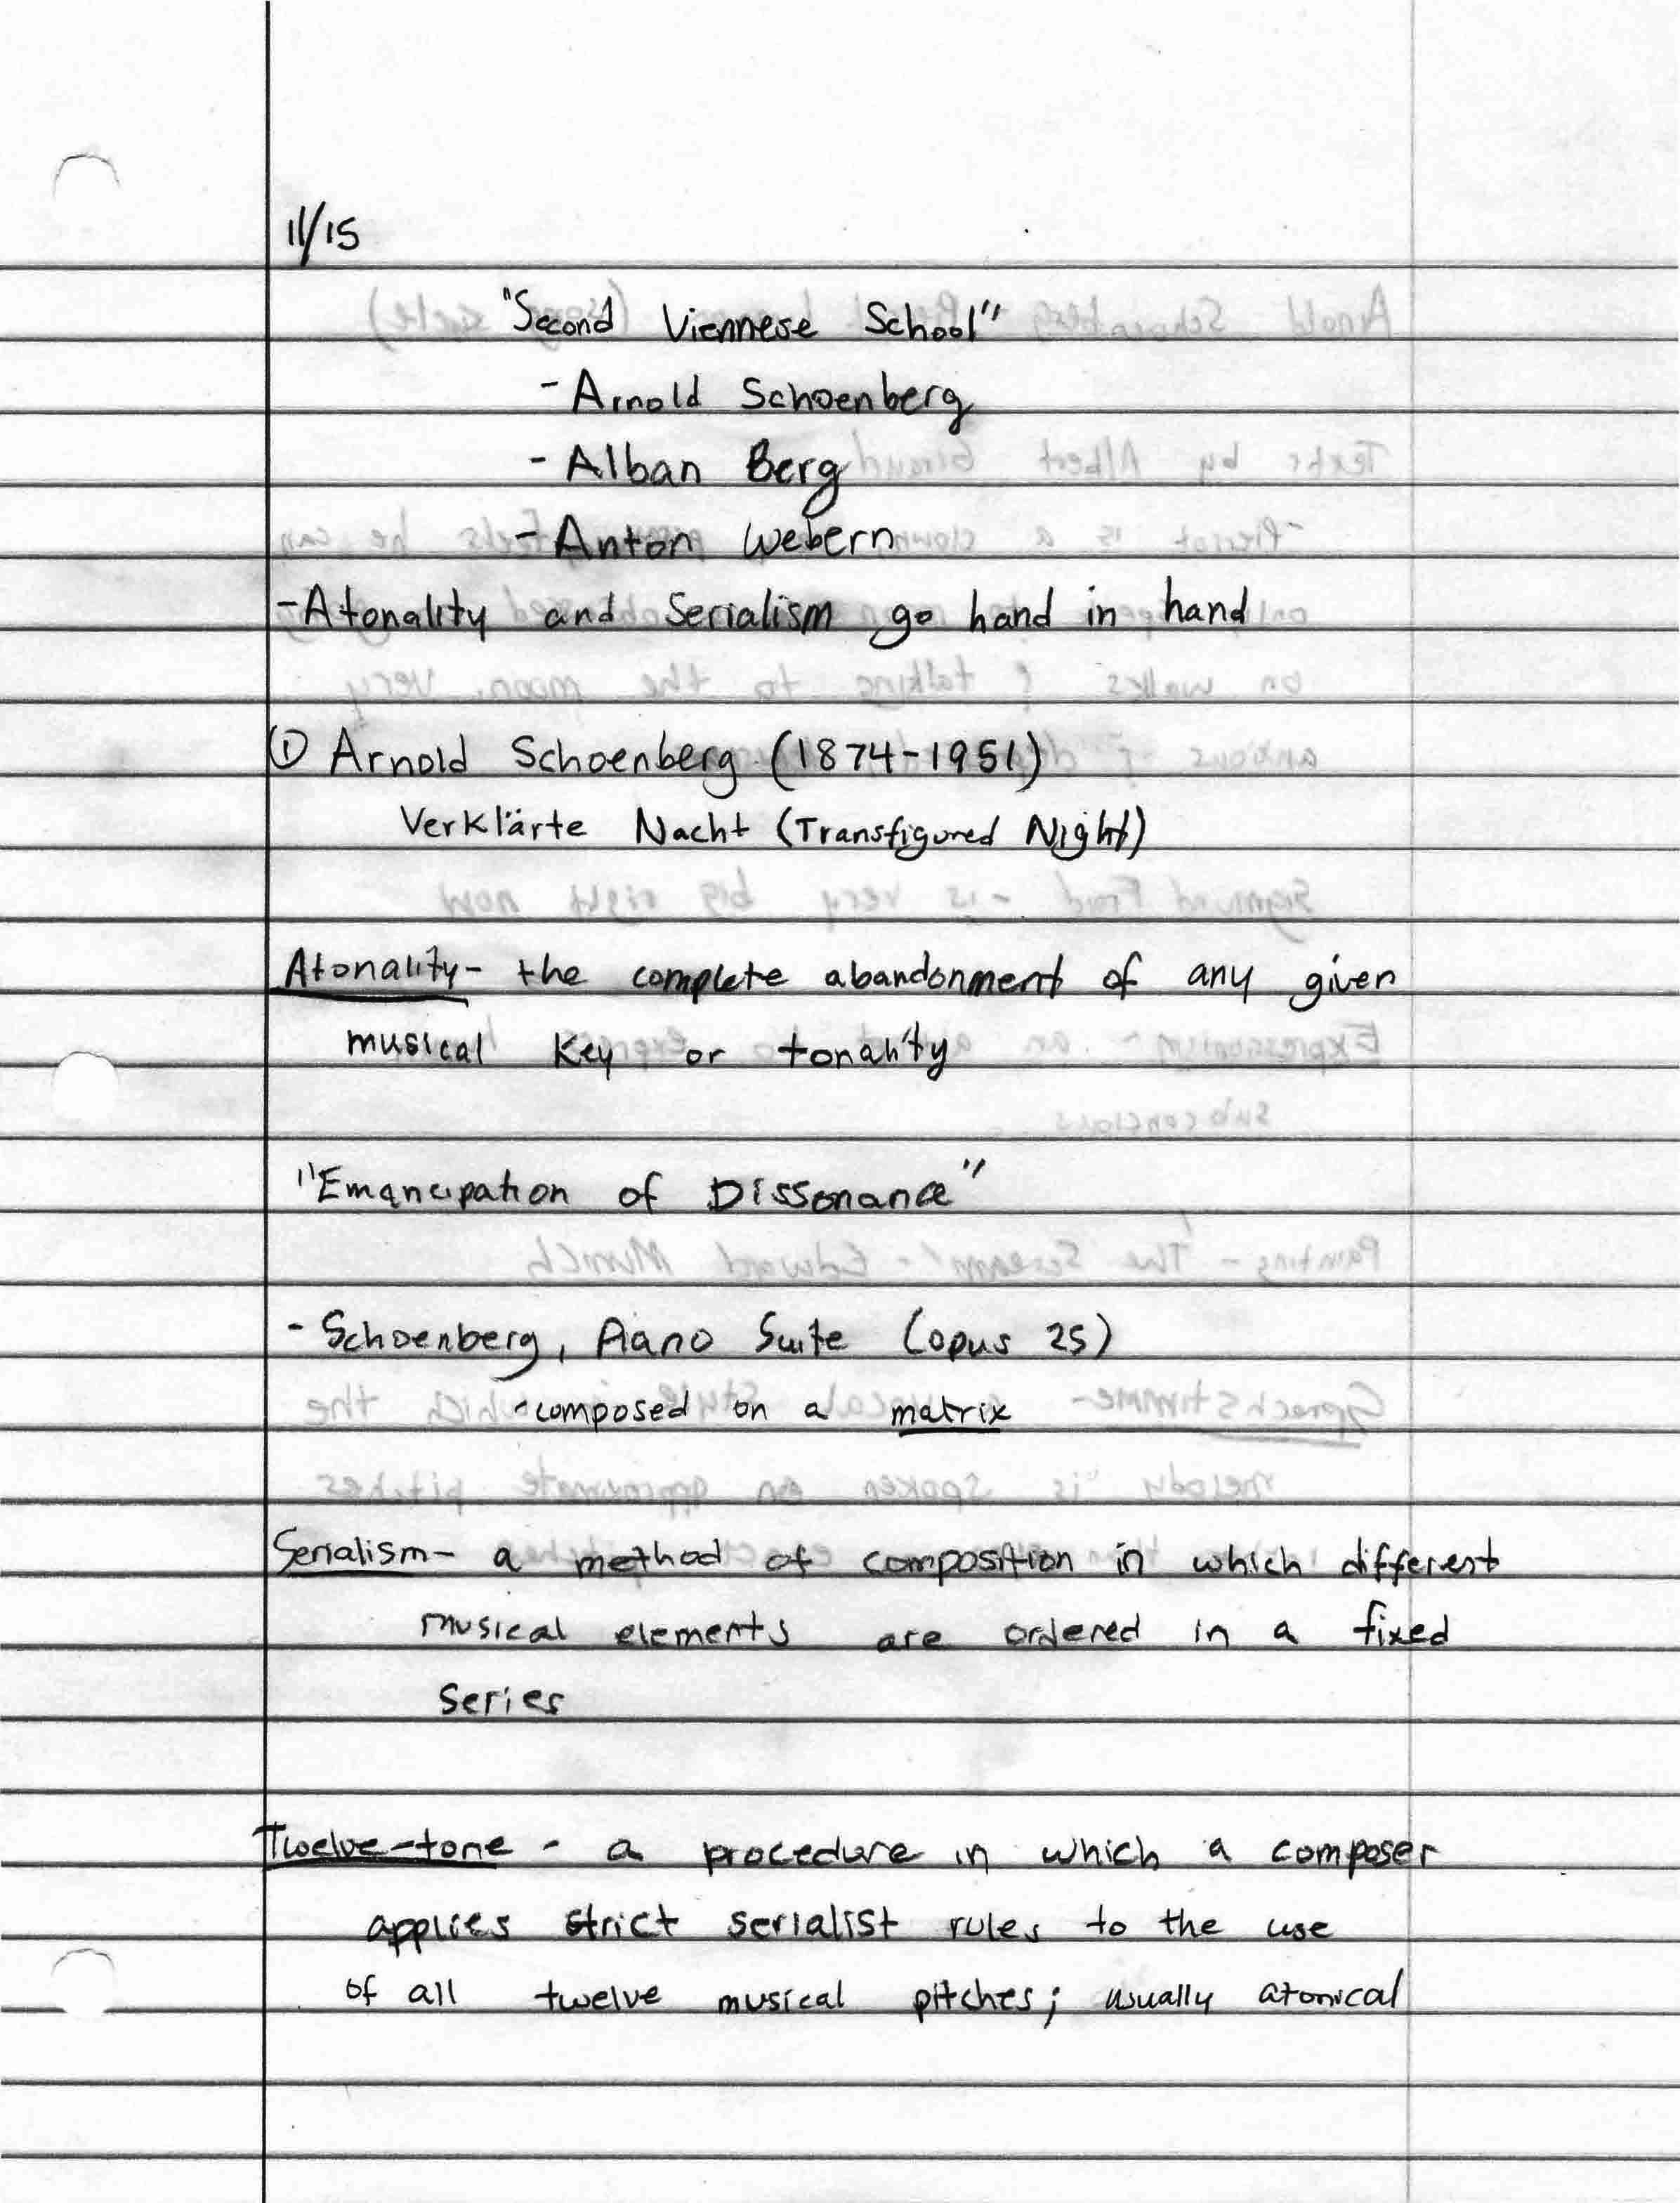 11/15
"Second Viennese School"
- Arnold Schoenberg
- Alban Berg
- Anton Webern
- Atonality and Serialism go hand in hand
① Arnold Schoenberg (1874-1951)
Verklärte Nacht (Transfigured Night)
Atonality - the complete abandonment of any given
musical key or tonality
"Emancipation of Dissonance"
- Schoenberg, Piano Suite (opus 25)
- composed on a matrix
Serialism - a method of composition in which different
musical elements are ordered in a fixed
series
Twelve-tone - a procedure in which a composer
applies strict serialist rules to the use
of all twelve musical pitches; usually atonical